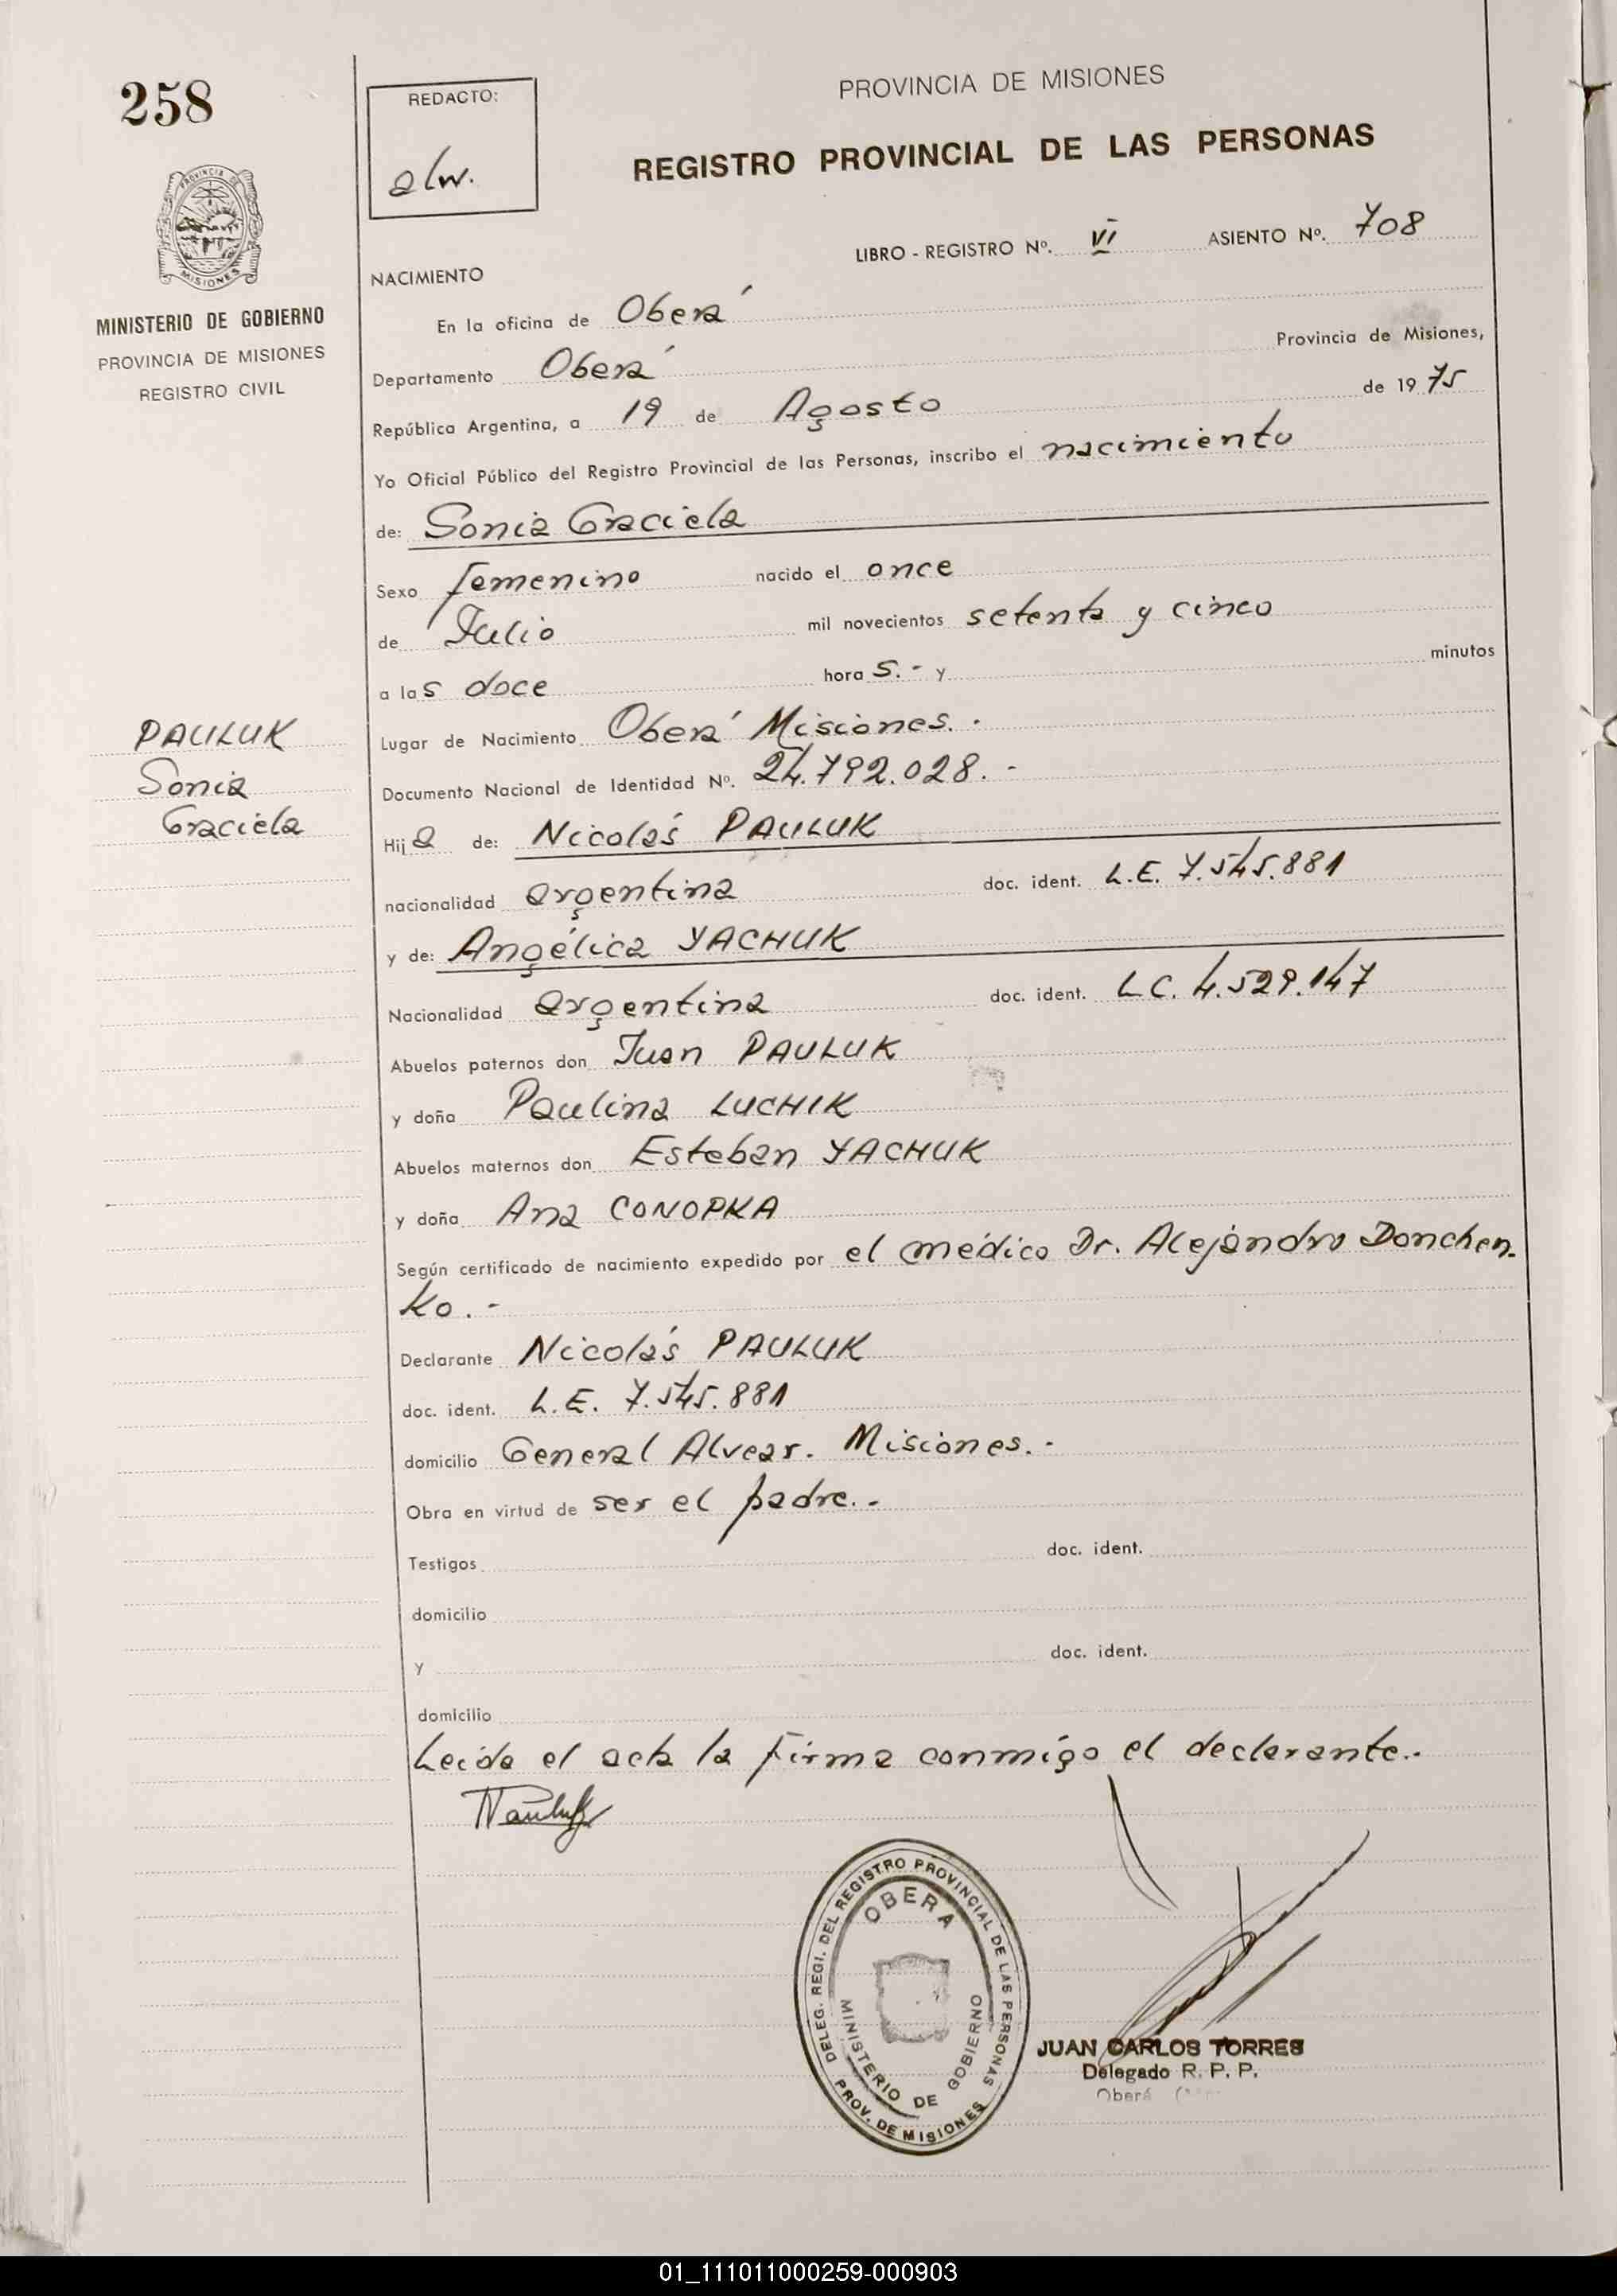 258
REDACTO:
alw.
PROVINCIA DE MISIONES
REGISTRO PROVINCIAL DE LAS PERSONAS
LIBRO - REGISTRO Nº. VI ASIENTO Nº. 708
PROVINCIA DE
MISIONES
MINISTERIO DE GOBIERNO
PROVINCIA DE MISIONES
REGISTRO CIVIL
NACIMIENTO
En la oficina de Oberá
Departamento Oberá Provincia de Misiones,
República Argentina, a 19 de Agosto de 1975
Yo Oficial Público del Registro Provincial de las Personas, inscribo el nacimiento
de: Sonia Graciela
Sexo femenino nacido el once
de Julio mil novecientos setenta y cinco
a las doce hora s.- y minutos
PAULUK
Sonia
Graciela
Lugar de Nacimiento Oberá Misiones.-
Documento Nacional de Identidad Nº. 24.792.028.-
Hija de: Nicolás PAULUK
nacionalidad argentina doc. ident. L.E. 7.545.881
y de: Angélica YACHUK
Nacionalidad argentina doc. ident. L.C. 4.529.147
Abuelos paternos don Juan PAULUK
y doña Paulina LUCHIK
Abuelos maternos don Esteban YACHUK
y doña Ana CONOPKA
Según certificado de nacimiento expedido por el médico Dr. Alejandro Donchen-
ko.-
Declarante Nicolás PAULUK
doc. ident. L.E. 7.545.881
domicilio General Alvear. Misiones.-
Obra en virtud de ser el padre.-
Testigos doc. ident.
domicilio
y doc. ident.
domicilio
Leida el acta la firma conmigo el declarante.-
NPauluk
DELEG. REGI. DEL REGISTRO PROVINCIAL DE LAS PERSONAS
OBERA
MINISTERIO DE GOBIERNO
PROV. DE MISIONES
JUAN CARLOS TORRES
Delegado R. P. P.
Oberá
01_111011000259-000903